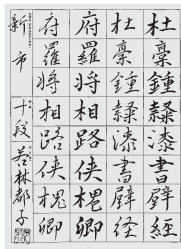 杜稾鍾隸漆書壁経
杜稾鍾隸漆書壁経
府羅将相路侠槐卿
府羅将相路侠槐卿
新市 十段 若林都子